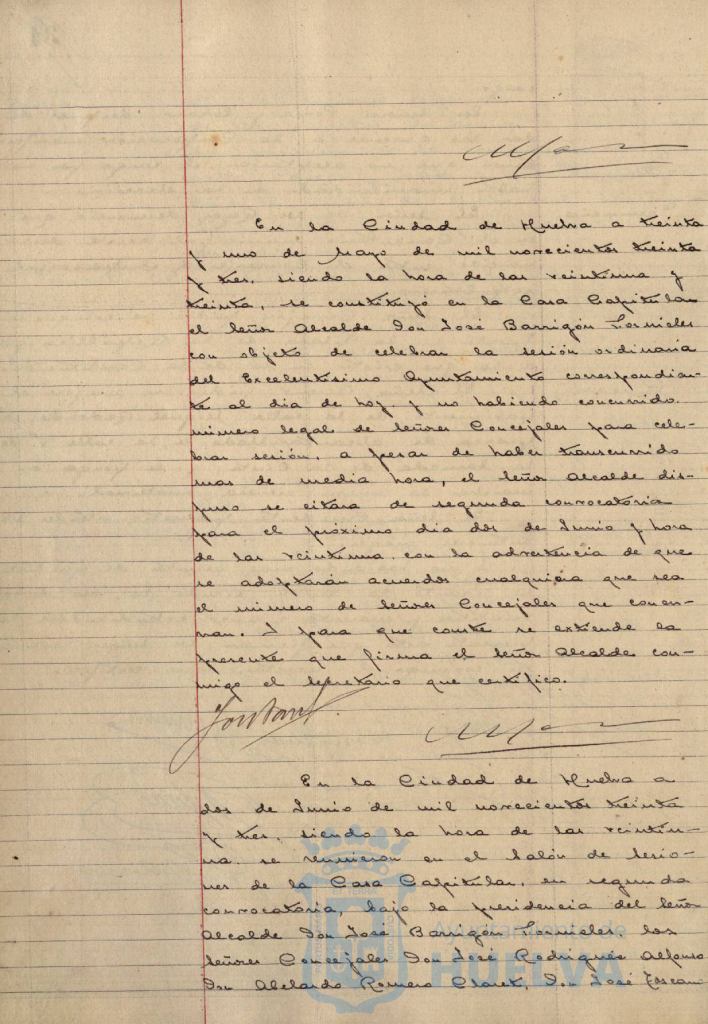 En la Ciudad de Huelva a treinta
y uno de Mayo de mil novecientos treinta
y tres, siendo la hora de las veintiuna y
treinta, se constituyó en la Casa Capitular
el Señor Alcalde Don José Barrigón Fornieles
con objeto de celebrar la sesión ordinaria
del Excelentísimo Ayuntamiento correspondien-
te al dia de hoy, y no habiendo concurrido
número legal de Señores Concejales para cele-
brar sesión, a pesar de haber transcurrido
mas de media hora, el Señor Alcalde dis-
puso se citara de segunda convocatoria
para el próximo dia dos de Junio y hora
de las veintiuna, con la advertencia de que
se adoptarán acuerdos cualquiera que sea
el número de Señores Concejales que concu-
rran. Y para que conste se extiende la
presente que firma el Señor Alcalde con-
migo el Secretario que certifico.
En la Ciudad de Huelva a
dos de Junio de mil novecientos treinta
y tres, siendo la hora de las veintiu-
na, se reunieron en el Salón de Sesio-
nes de la Casa Capitular, en segunda
convocatoria, bajo la presidencia del Señor
Alcalde Don José Barrigón Fornieles, los
Señores Concejales Don José Rodríguez Alfonso
Don Abelardo Romero Claret, Don José Toscano
Ayuntamiento de
HUELVA